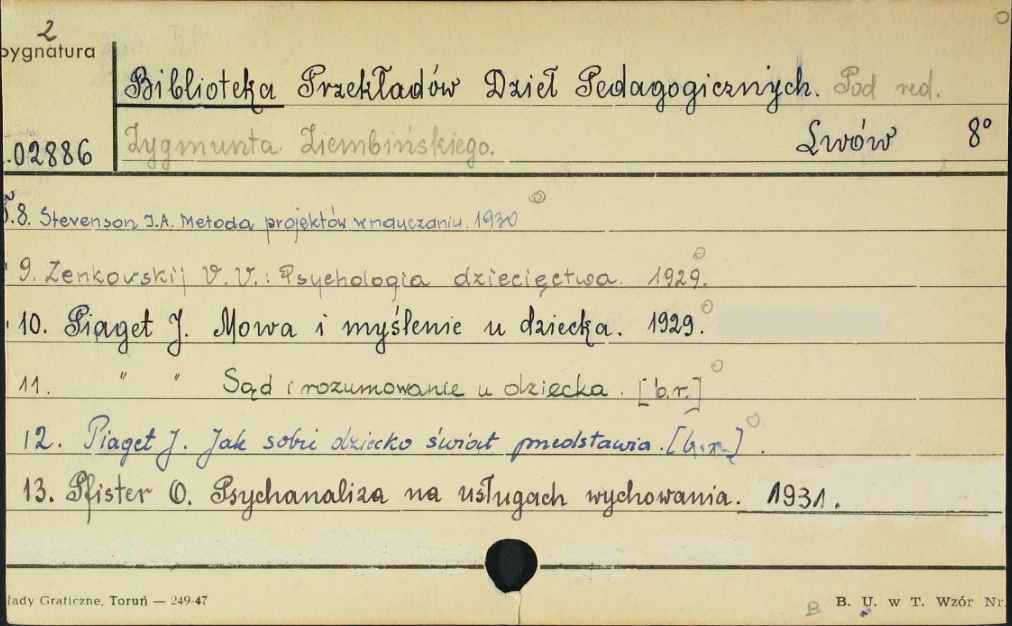 2
ygnatura
Biblioteka Przekładów Dzieł Pedagogicznych. Pod red.
02886 Zygmunta Ziembińskiego. Lwów 8°
8. Stevenson J.A. Metoda projektów w nauczaniu. 1930
9. Zenkovskij V. V.: Psychologia dziecięctwa. 1929.
10. Piaget J. Mowa i myślenie u dziecka. 1929.
11. " " Sąd i rozumowanie u dziecka. [b.r.]
12. Piaget J. Jak sobie dziecko świat przedstawia. [b.r.].
13. Pfister O. Psychanaliza na usługach wychowania. 1931.
łady Graficzne, Toruń — 249-47
B B. U. w T. Wzór Nr.